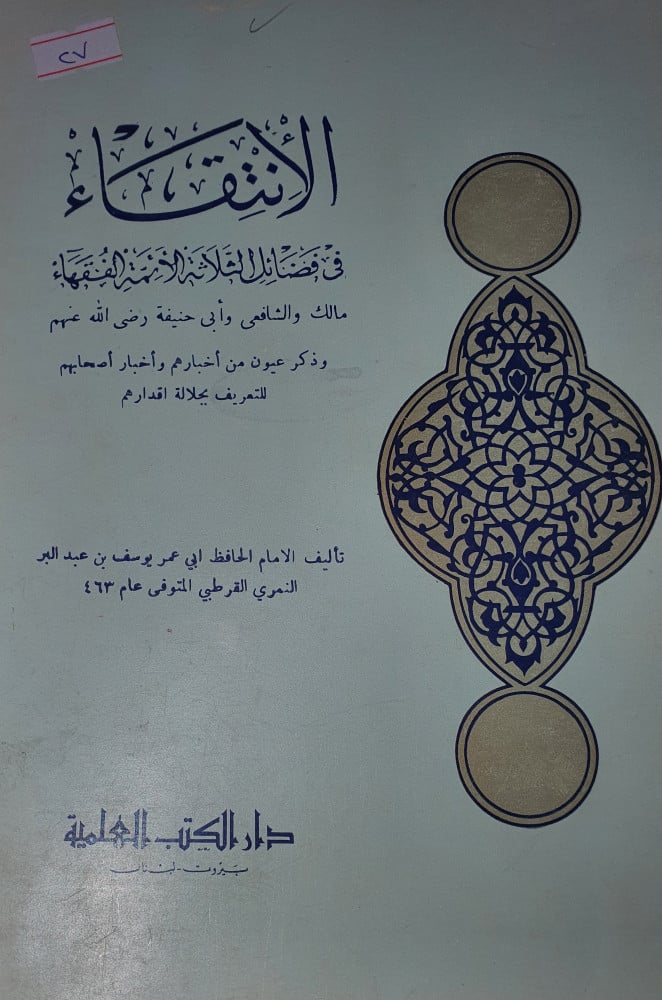 ٢٧
الإنتقاء
في فضائل الثلاثة الأئمة الفقهاء
مالك والشافعى وأبى حنيفة رضى الله عنهم
وذكر عيون من أخبارهم وأخبار أصحابهم
للتعريف بجلالة اقدارهم
تأليف الامام الحافظ ابي عمر يوسف بن عبد البر
النمري القرطبي المتوفى عام ٤٦٣
دار الكتب العلمية
بيروت - لبنان